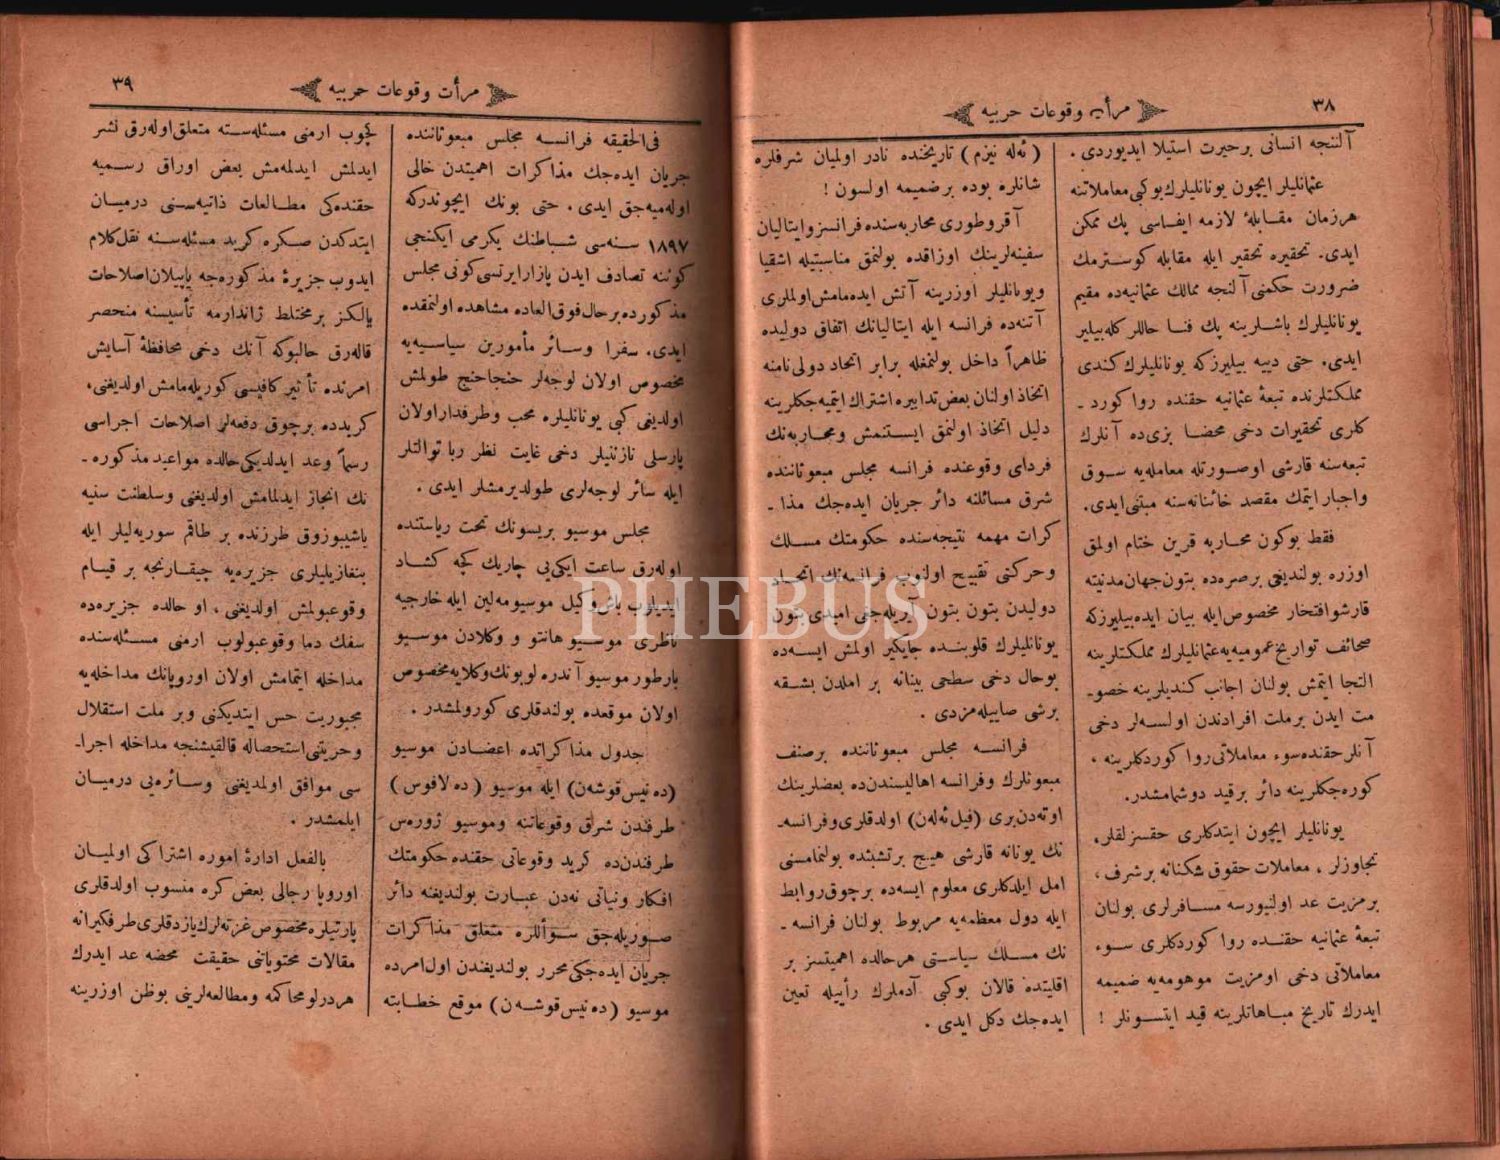 ٣٨
مرأت وقوعات حربیه
آلنجه انسانی برحیرت استیلا ایدیوردی.
عثمانلیلر ایچون یونانلیلرك بوكبی معاملاتنه
هرزمان مقابلهٔ لازمه ایفاسی پك ممكن
ایدی. تحقیره تحقیر ایله مقابله كوسترمك
ضرورت حكمنی آلنجه ممالك عثمانیه‌ده مقیم
یونانلیلرك باشلرینه پك فنا حاللر كله‌بیلیر
ایدی. حتی دییه بیلیرزكه یونانلیلرك كندی
مملكتلرنده تبعهٔ عثمانیه حقنده روا كورد ـ
كلری تحقیرات دخی محضا بزی‌ده آنلرك
تبعه‌سنه قارشی اوصورتله معامله‌یه سوق
واجبار ایتمك مقصد خائنانه‌سنه مبتنی‌ایدی.
فقط بوكون محاربه قرین ختام اولمق
اوزره بولندیغی برصره‌ده بتون‌جهان‌مدنیته
قارشوافتخار مخصوص‌ایله بیان ایده‌بیلیرزكه
صحائف تواریخ‌عمومیه‌یه‌عثمانلیلرك مملكتلرینه
التجا ایتمش بولنان اجانب كندیلرینه خصو‌ـ
مت ایدن برملت افرادندن اولسه‌لر دخی
آنلر حقنده‌سوء معاملاتی‌روا كوردكلرینه،
كوره‌جكلرینه دائر برقید دوشمامشدر.
یونانلیلر ایچون ایتدكلری حقسزلقلر،
تجاوزلر، معاملات حقوق شكنانه برشرف،
برمزیت عد اولنیورسه مسافرلری بولنان
تبعهٔ عثمانیه حقنده روا كوردكلری سوء
معاملاتی دخی اومزیت موهومه‌یه ضمیمه
ایدرك تاریخ مباهاتلرینه قید ایتسونلر!
(ئه‌له نیزم) تاریخنده نادر اولمیان شرفلره
شانلره بوده برضمیمه اولسون!
آقروطوری محاربه‌سنده فرانسز و ایتالیان
سفینه‌لرینك اوزاقده بولنمق مناسبتیله اشقیا
ویونانلیلر اوزرینه آتش ایده‌مامش‌اولملری
آتنه‌ده فرانسه ایله ایتالیانك اتفاق دولیده
ظاهراً داخل بولنمغله برابر اتحاد دولی‌نامنه
اتخاذ اولنان بعض‌تدابیره اشتراك ایتمیه‌جكلرینه
دلیل اتخاذ اولنمق ایستنمش ومحاربه‌نك
فردای وقوعنده فرانسه مجلس مبعوثاننده
شرق مسائلنه دائر جریان ایده‌جك مذا ـ
كرات مهمه نتیجه‌سنده حكومتك مسلك
وحركتی تقبیح اولنوب فرانسه‌نك اتحاد
دولیدن بتون بتون آیریله‌جغی امیدی بتون
یونانلیلرك قلوبنده جایگیر اولمش ایسه‌ده
بوحال دخی سطحی بینانه بر املدن بشقه
برشی صاییله‌مزدی.
فرانسه مجلس مبعوثاننده برصنف
مبعوثلرك وفرانسه اهالیسندن‌ده بعضلرینك
اوته‌دن‌بری (فیل‌ئه‌له‌ن) اولدقلری‌وفرانسه‌ـ
نك یونانه قارشی هیچ برتشبثده بولنمامسنی
امل ایلدكلری معلوم ایسه‌ده برچوق‌روابط
ایله دول معظمه‌یه مربوط بولنان فرانسه ـ
نك مسلك سیاستی هرحالده اهمیتسز بر
اقلیتده قالان بوكبی آدملرك رأییله تعین
ایده‌جك دكل ایدی.
٣٩
مرأت وقوعات حربیه
فی‌الحقیقه فرانسه مجلس مبعوثاننده
جریان ایده‌جك مذاكرات اهمیتدن خالی
اوله‌میه‌جق ایدی. حتی بونك ایچوندركه
١٨٩٧ سنه‌سی شباطنك یكرمی ایكنجی
كوننه تصادف ایدن پازارایرتسی‌كونی مجلس
مذكورده‌برحال‌فوق‌العاده مشاهده اولنمقده
ایدی. سفرا وسائر مأمورین سیاسیه‌یه
مخصوص اولان لوجه‌لر خنجاخنج طولمش
اولدیغی كبی یونانلیلره محب وطرفداراولان
پارسلی نازنینلر دخی غایت نظر ربا توالتلر
ایله سائر لوجه‌لری طولدیرمشلر ایدی.
مجلس موسیو بریسونك تحت ریاستنده
اوله‌رق ساعت ایكی‌یی چاریك كچه كشاد
ایدیلوب باش‌وكیل موسیومه‌لین ایله خارجیه
ناظری موسیو هانتو و وكلادن موسیو
بارطور موسیو آندره لوبونك وكلایه‌مخصوص
اولان موقعده بولندقلری كورولمشدر.
جدول مذاكراتده اعضادن موسیو
(ده‌نیس‌قوشه‌ن) ایله موسیو (ده‌لافوس)
طرفندن شرق وقوعاتنه وموسیو ژوره‌س
طرفندن‌ده كرید وقوعاتی حقنده حكومتك
افكار ونیاتی نه‌دن عبارت بولندیغنه دائر
صوریله‌جق سؤاللره متعلق مذاكرات
جریان ایده‌جكی محرر بولندیغندن اول‌امرده
موسیو (ده‌نیس‌قوشه‌ن) موقع خطابته
كچوب ارمنی مسئله‌سته متعلق‌اوله‌رق نشر
ایدلمش ایدلمه‌مش بعض اوراق رسمیه
حقنده‌كی مطالعات ذاتیه‌سنی درمیان
ایتدكدن صكره كرید مسئله‌سنه نقل‌كلام
ایدوب جزیرهٔ مذكوره‌جه یاپیلان‌اصلاحات
یالكز برمختلط ژاندارمه تأسیسنه منحصر
قاله‌رق حالبوكه آنك دخی محافظهٔ آسایش
امرنده تأثیر كافیسی كوریله‌مامش اولدیغی،
كریدده برچوق دفعه‌لر اصلاحات اجراسی
رسماً وعد ایدلدیكی‌حالده مواعید مذكوره ـ
نك انجاز ایدلمامش اولدیغنی وسلطنت سنیه
باشیبوزوق طرزنده بر طاقم سوریه‌لیلر ایله
بنغازیلیلری جزیره‌یه چیقارنجه بر قیام
وقوعبولمش اولدیغنی، او حالده جزیره‌ده
سفك دما وقوعبولوب ارمنی مسئله‌سنده
مداخله ایتمامش اولان اوروپانك مداخله‌یه
مجبوریت حس ایتدیكنی وبر ملت استقلال
وحریتنی‌استحصاله قالقیشنجه مداخله اجرا‌ـ
سی موافق اولمدیغنی وسائره‌یی درمیان
ایلمشدر.
بالفعل ادارهٔ اموره اشتراكی اولمیان
اوروپا رجالی بعض كره منسوب اولدقلری
پارتیلره‌مخصوص‌غزته‌لرك‌یازدقلری‌طرفكیرانه
مقالات محتویاتنی حقیقت محضه عد ایدرك
هردرلومحاكمه ومطالعه‌لرینی بوظن اوزرینه
PHEBUS